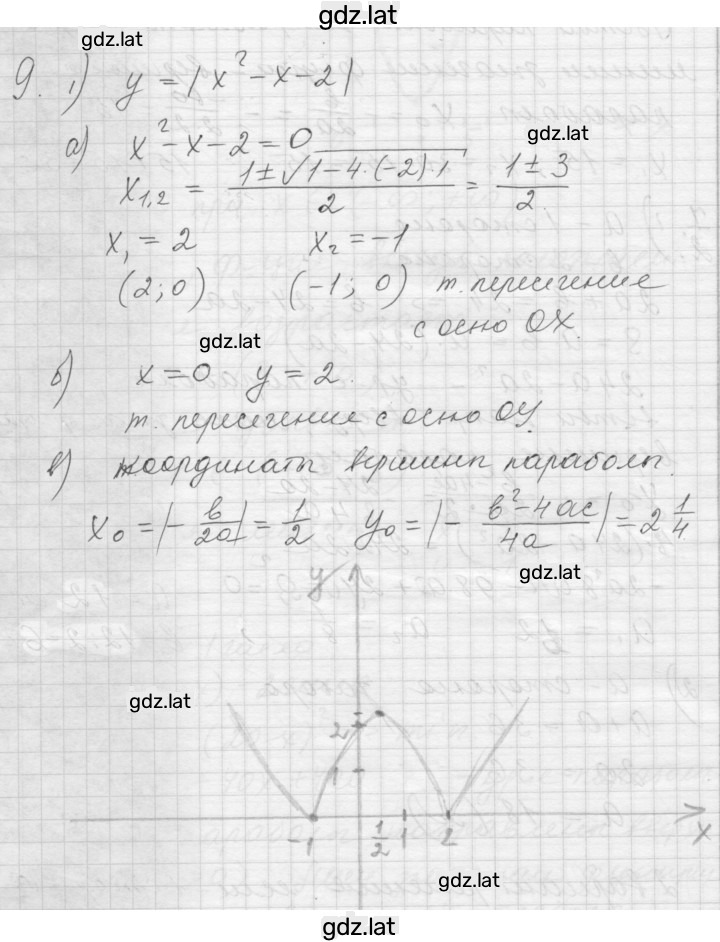 gdz.lat
gdz.lat
9. 1) y = |x² - x - 2|
а) x² - x - 2 = 0
gdz.lat
x₁,₂ = (1 ± √(1 - 4·(-2)·1))/2 = (1 ± 3)/2
x₁ = 2 x₂ = -1
(2; 0) (-1; 0) т. пересечение
с осью OX.
gdz.lat
б) x = 0 y = 2.
т. пересечение с осью OY.
в) координаты вершины параболы.
x₀ = |- в/2a| = 1/2 y₀ = |- (в² - 4ac)/4a| = 2 1/4
gdz.lat
y
gdz.lat
2
1
-1 1/2 1 2 x
gdz.lat
gdz.lat